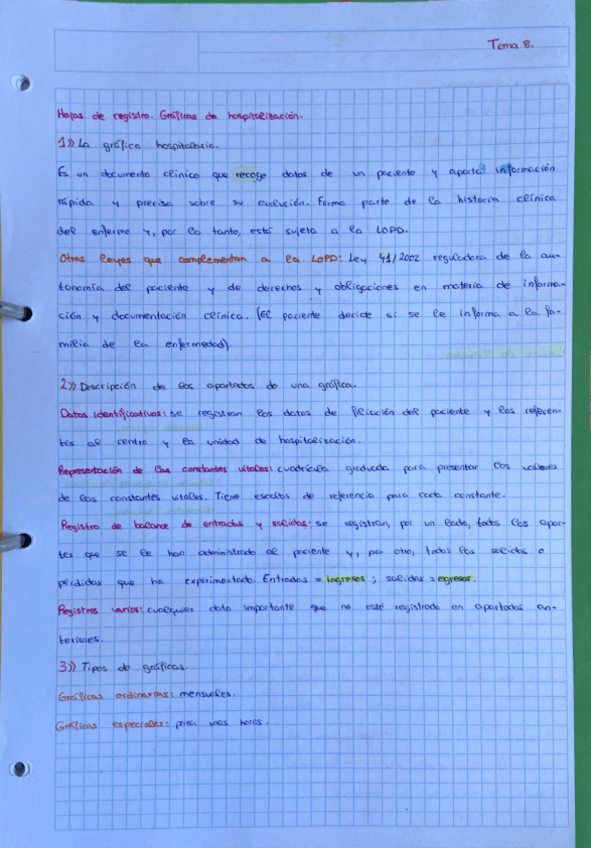 Tema 8.
Hojas de registro. Gráficas de hospitalización.
1)) La gráfica hospitalaria.
Es un documento clínico que recoge datos de un paciente y aporta información
rápida y precisa sobre su evolución. Forma parte de la historia clínica
del enfermo y, por lo tanto, está sujeto a la LOPD.
Otras leyes que complementan a la LOPD: Ley 41/2002 reguladora de la au-
tonomía del paciente y de derechos y obligaciones en materia de informa-
ción y documentación clínica. (El paciente decide si se le informa a la fa-
milia de la enfermedad).
2)) Descripción de los apartados de una gráfica.
Datos identificativos: se registran los datos de filiación del paciente y los referen-
tes al centro y la unidad de hospitalización.
Representación de las constantes vitales: cuadrícula graduada para presentar los valores
de las constantes vitales. Tiene escalas de referencia para cada constante.
Registro de balance de entradas y salidas: se registran, por un lado, todos los apor-
tes que se le han administrado al paciente y, por otro, todas las salidas o
pérdidas que ha experimentado. Entradas = ingresos ; salidas = egresos.
Registros varios: cualquier dato importante que no esté registrado en apartados an-
teriores.
3)) Tipos de gráficas.
Gráficas ordinarias: mensuales.
Gráficas especiales: para unas horas.